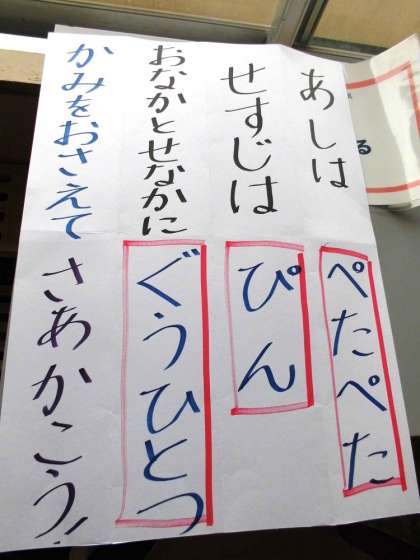 あしは ぺたぺた
せすじは ぴん
おなかとせなかに ぐうひとつ
かみをおさえて さあかこう!
る